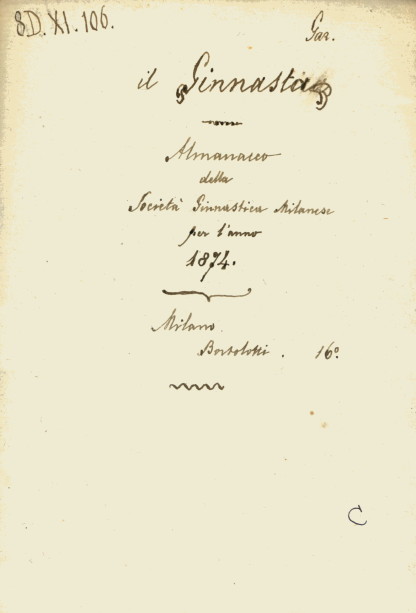 8.D.XI.106.
Gar.
il Ginnasta
Almanacco
della
Società Ginnastica Milanese
per l'anno
1874.
Milano
Bortolotti. 16º.
C